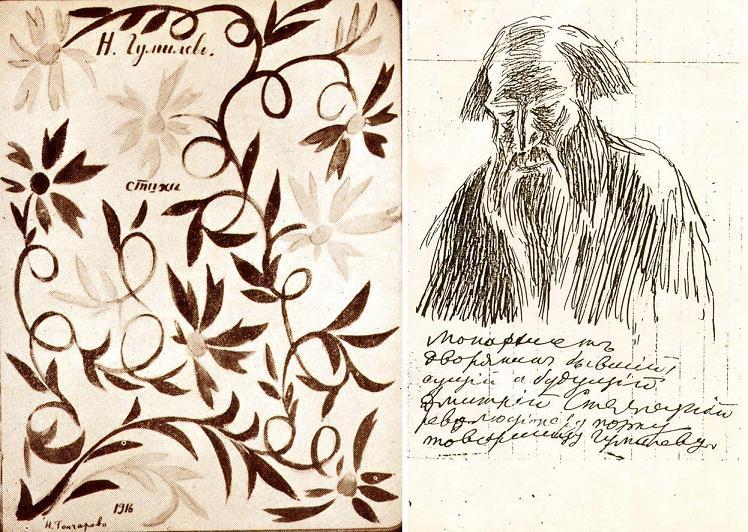 Н. Гумилев.
стихи
1916
Н. Гончарова
Монархистъ
дворянин бывший,
сущий и будущий
Дмитрий Стеллецкий
революціонеру поэту
товарищу Гумилеву.